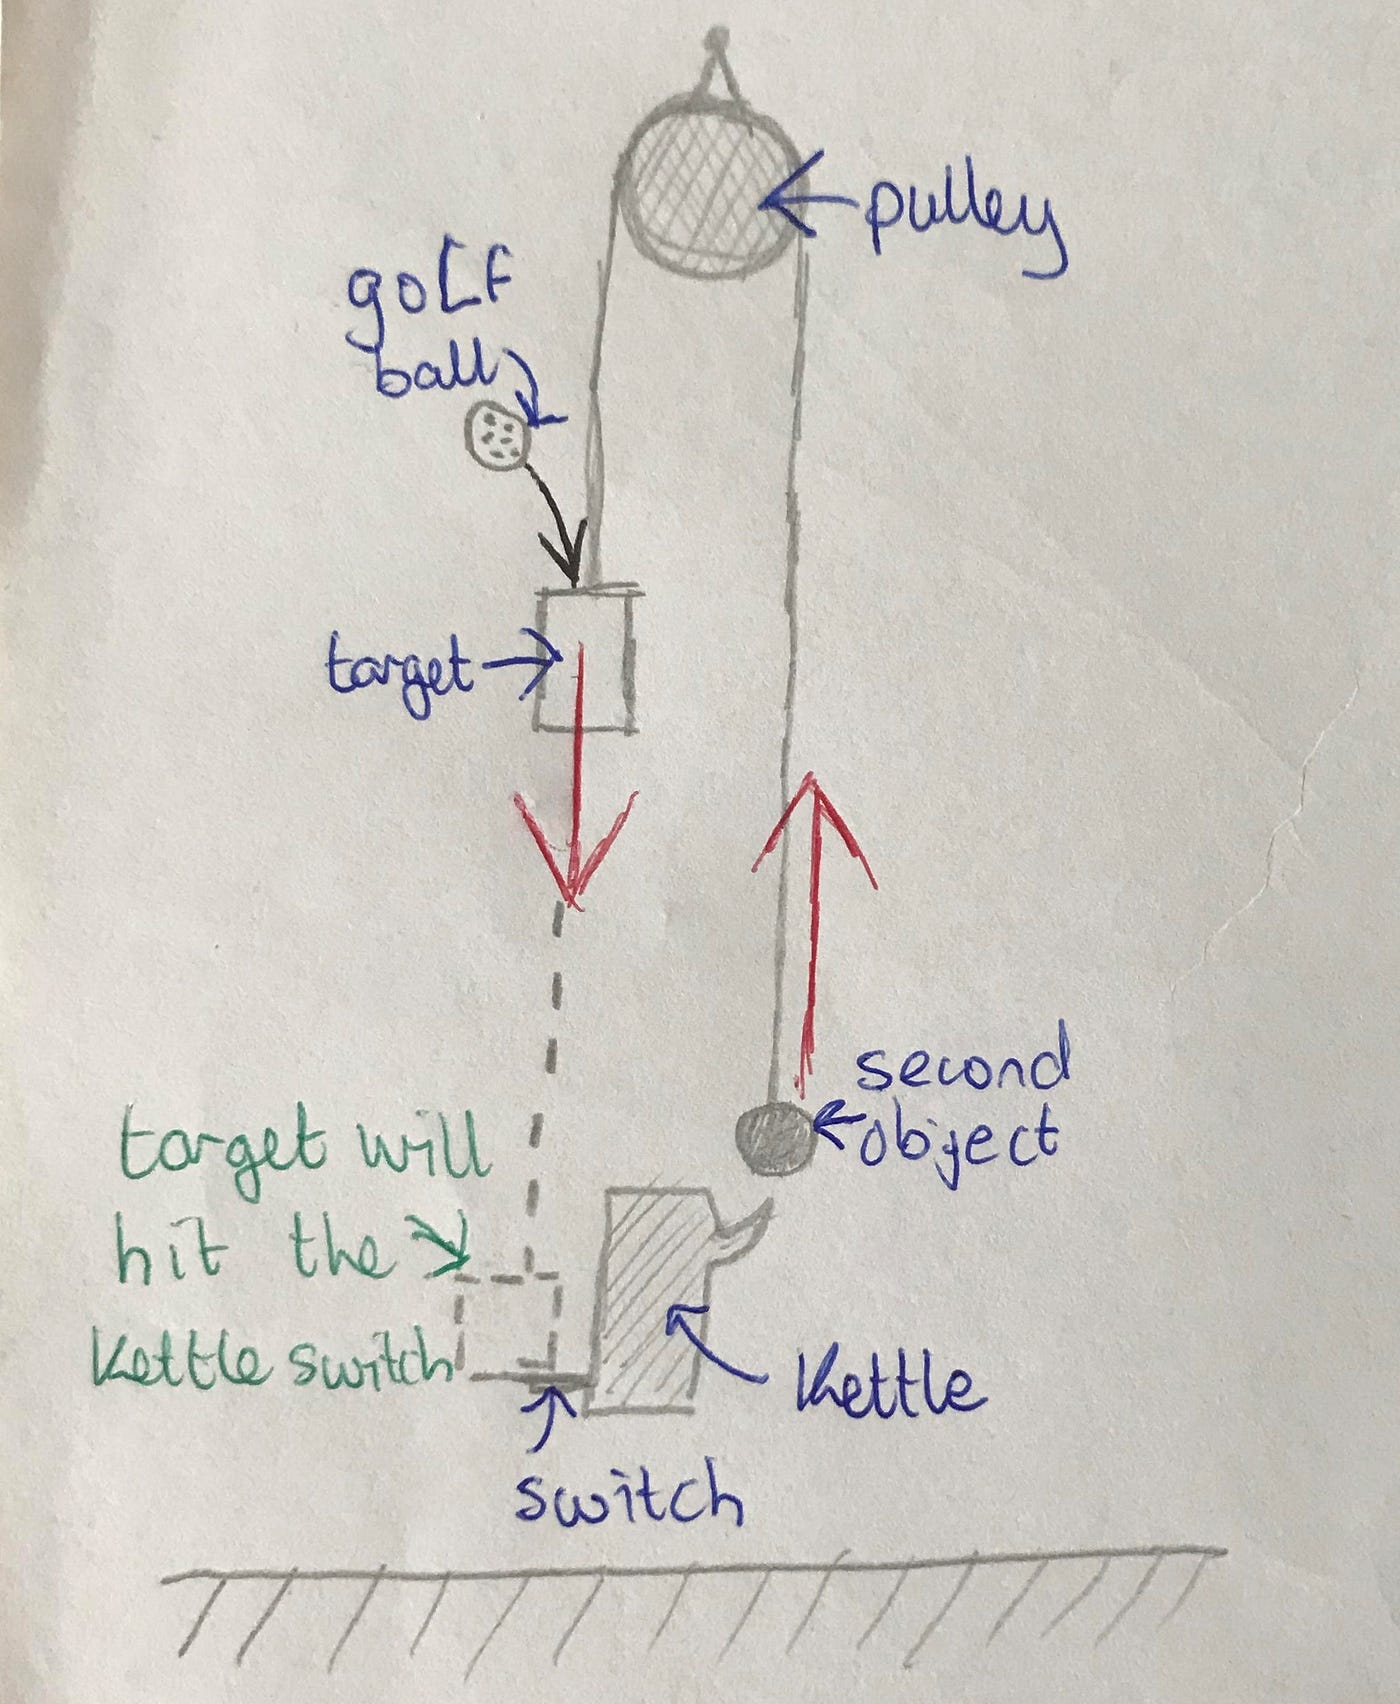 pulley
golf
ball
target
second
object
target will
hit the
Kettle switch
Kettle
switch